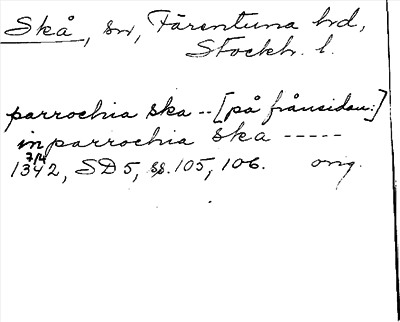 Skå, sn, Färentuna hrd,
Stockh. l.
parrochia ska -- [på frånsidan:]
in parrochia ska -----
1342, SD5, ss. 105, 106. orig.